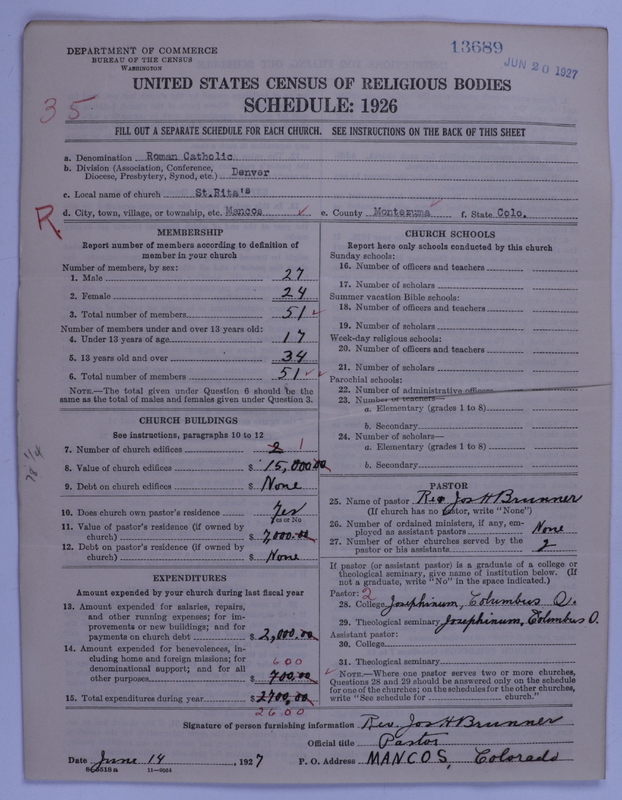 DEPARTMENT OF COMMERCE
BUREAU OF THE CENSUS
WASHINGTON
13689
JUN 20 1927
UNITED STATES CENSUS OF RELIGIOUS BODIES
SCHEDULE: 1926
35
FILL OUT A SEPARATE SCHEDULE FOR EACH CHURCH. SEE INSTRUCTIONS ON THE BACK OF THIS SHEET
a. Denomination Roman Catholic
b. Division (Association, Conference, Diocese, Presbytery, Synod, etc.) Denver
c. Local name of church St.Rita's
R.
d. City, town, village, or township, etc. Mancos e. County Montezuma f. State Colo.
MEMBERSHIP
Report number of members according to definition of
member in your church
Number of members, by sex:
1. Male 27
2. Female 24
3. Total number of members 51
Number of members under and over 13 years old:
4. Under 13 years of age 17
5. 13 years old and over 34
6. Total number of members 51
NOTE.—The total given under Question 6 should be the
same as the total of males and females given under Question 3.
CHURCH BUILDINGS
See instructions, paragraphs 10 to 12
7. Number of church edifices 2 1
8. Value of church edifices $ 15,000.00
9. Debt on church edifices $ None
10. Does church own pastor's residence Yes
Yes or No
11. Value of pastor's residence (if owned by
church) $ 7,000.00
12. Debt on pastor's residence (if owned by
church) $ None
EXPENDITURES
Amount expended by your church during last fiscal year
13. Amount expended for salaries, repairs,
and other running expenses; for im-
provements or new buildings; and for
payments on church debt $ 2,000.00
14. Amount expended for benevolences, in-
cluding home and foreign missions; for
denominational support; and for all 600
other purposes $ 700.00
15. Total expenditures during year $ 2700.00
2600
CHURCH SCHOOLS
Report here only schools conducted by this church
Sunday schools:
16. Number of officers and teachers
17. Number of scholars
Summer vacation Bible schools:
18. Number of officers and teachers
19. Number of scholars
Week-day religious schools:
20. Number of officers and teachers
21. Number of scholars
Parochial schools:
22. Number of administrative officers
23. Number of teachers—
a. Elementary (grades 1 to 8)
b. Secondary
24. Number of scholars—
a. Elementary (grades 1 to 8)
b. Secondary
PASTOR
25. Name of pastor Rev Jos H Brunner
(If church has no pastor, write "None")
26. Number of ordained ministers, if any, em-
ployed as assistant pastors None
27. Number of other churches served by the
pastor or his assistants 2
If pastor (or assistant pastor) is a graduate of a college or
theological seminary, give name of institution below. (If
not a graduate, write "No" in the space indicated.)
Pastor: 2
28. College Josephinum, Columbus O.
29. Theological seminary Josephinum, Columbus O.
Assistant pastor:
30. College
31. Theological seminary
NOTE.—Where one pastor serves two or more churches,
Questions 28 and 29 should be answered only on the schedule
for one of the churches; on the schedules for the other churches,
write "See schedule for church."
Signature of person furnishing information Rev. Jos H Brunner
Official title Pastor
Date June 14, 1927 P. O. Address MANCOS, Colorado
11—9064